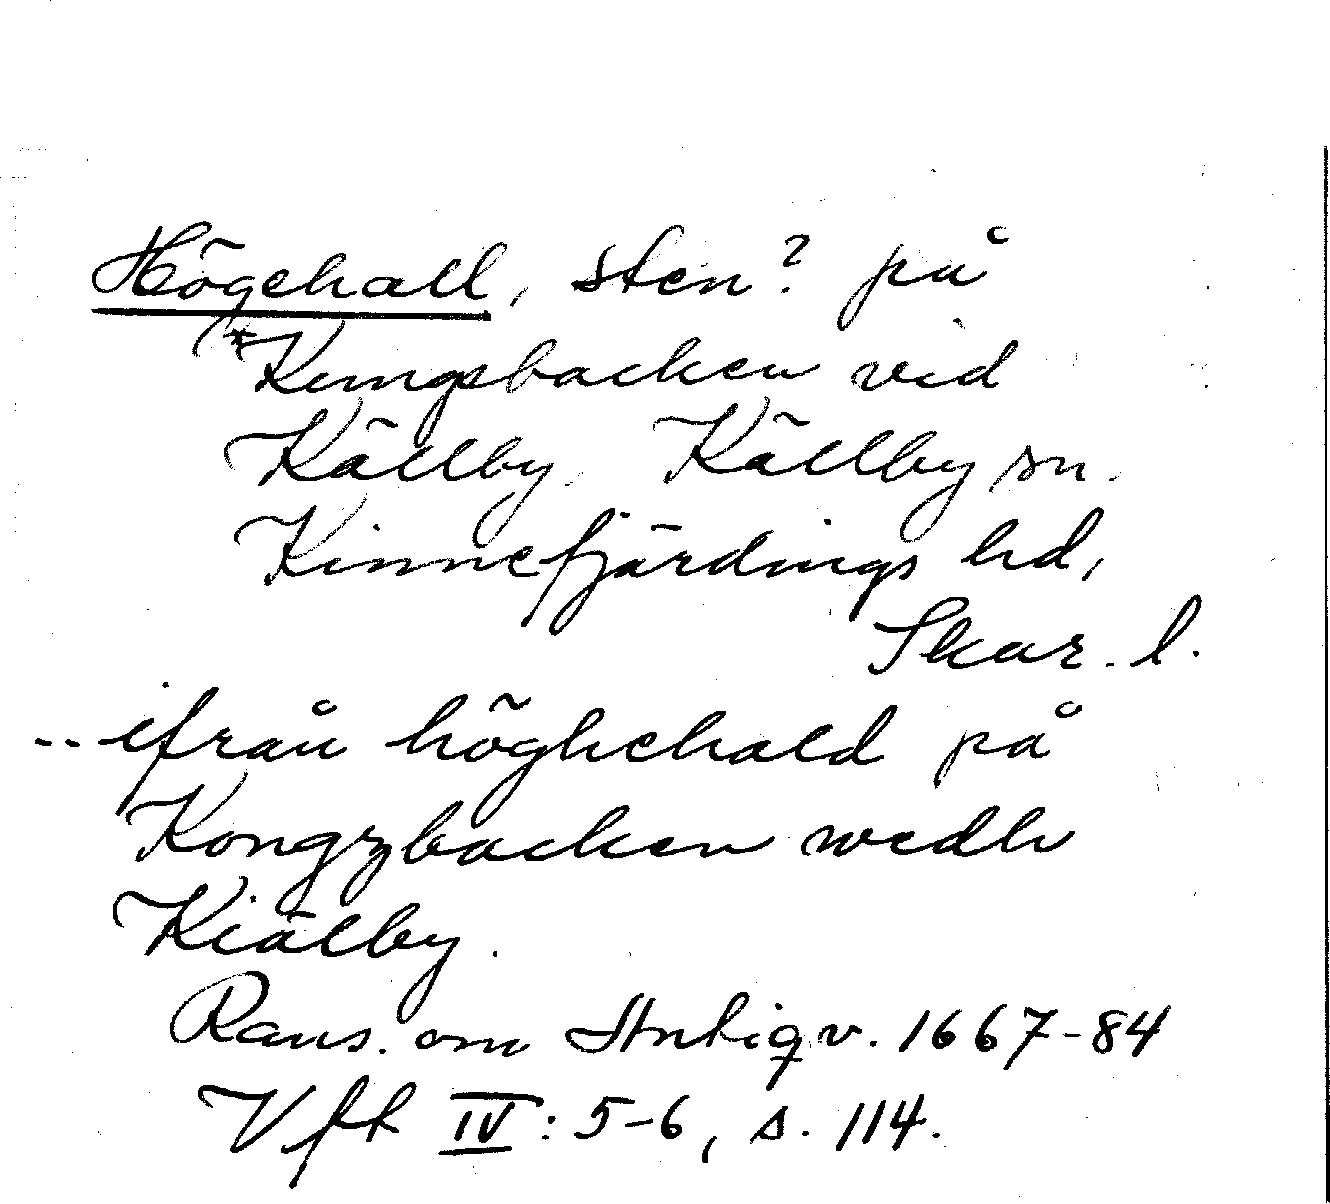 Högehall, sten? på
*Kungsbacken vid
Källby, Källby sn.
Kinnefjärdings hd,
Skar. l.
... ifrån höghehald på
Kongzbacken wedh
Kiälby.
Rans. om Antiqv. 1667-84
Vfh IV: 5-6, s. 114.